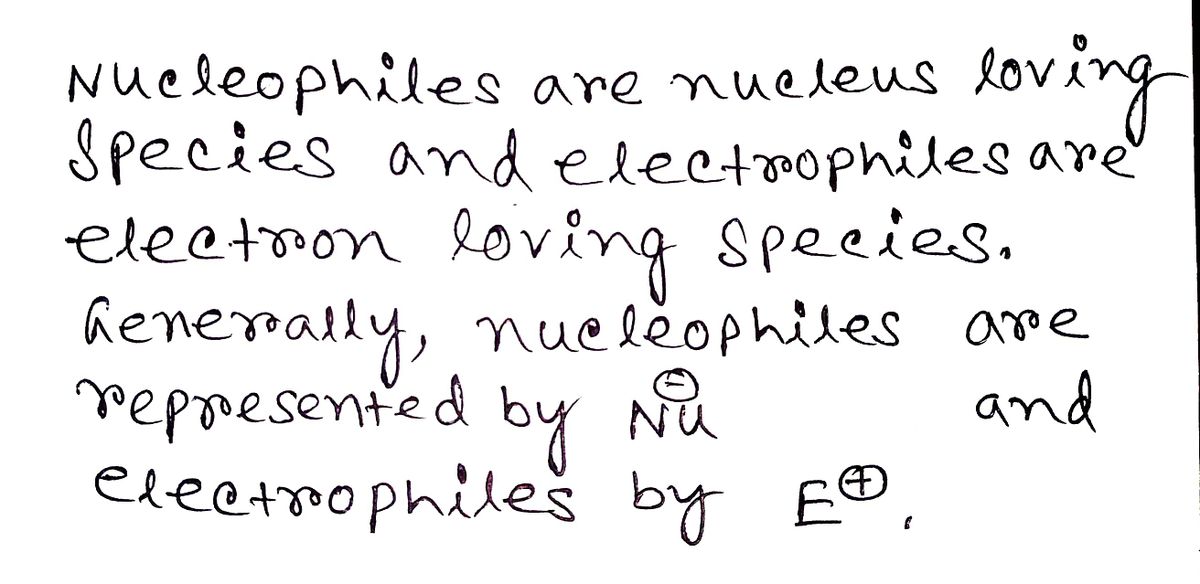 Nucleophiles are nucleus loving
species and electrophiles are
electron loving species.
Generally, nucleophiles are
represented by Nu⊖ and
electrophiles by E⊕.